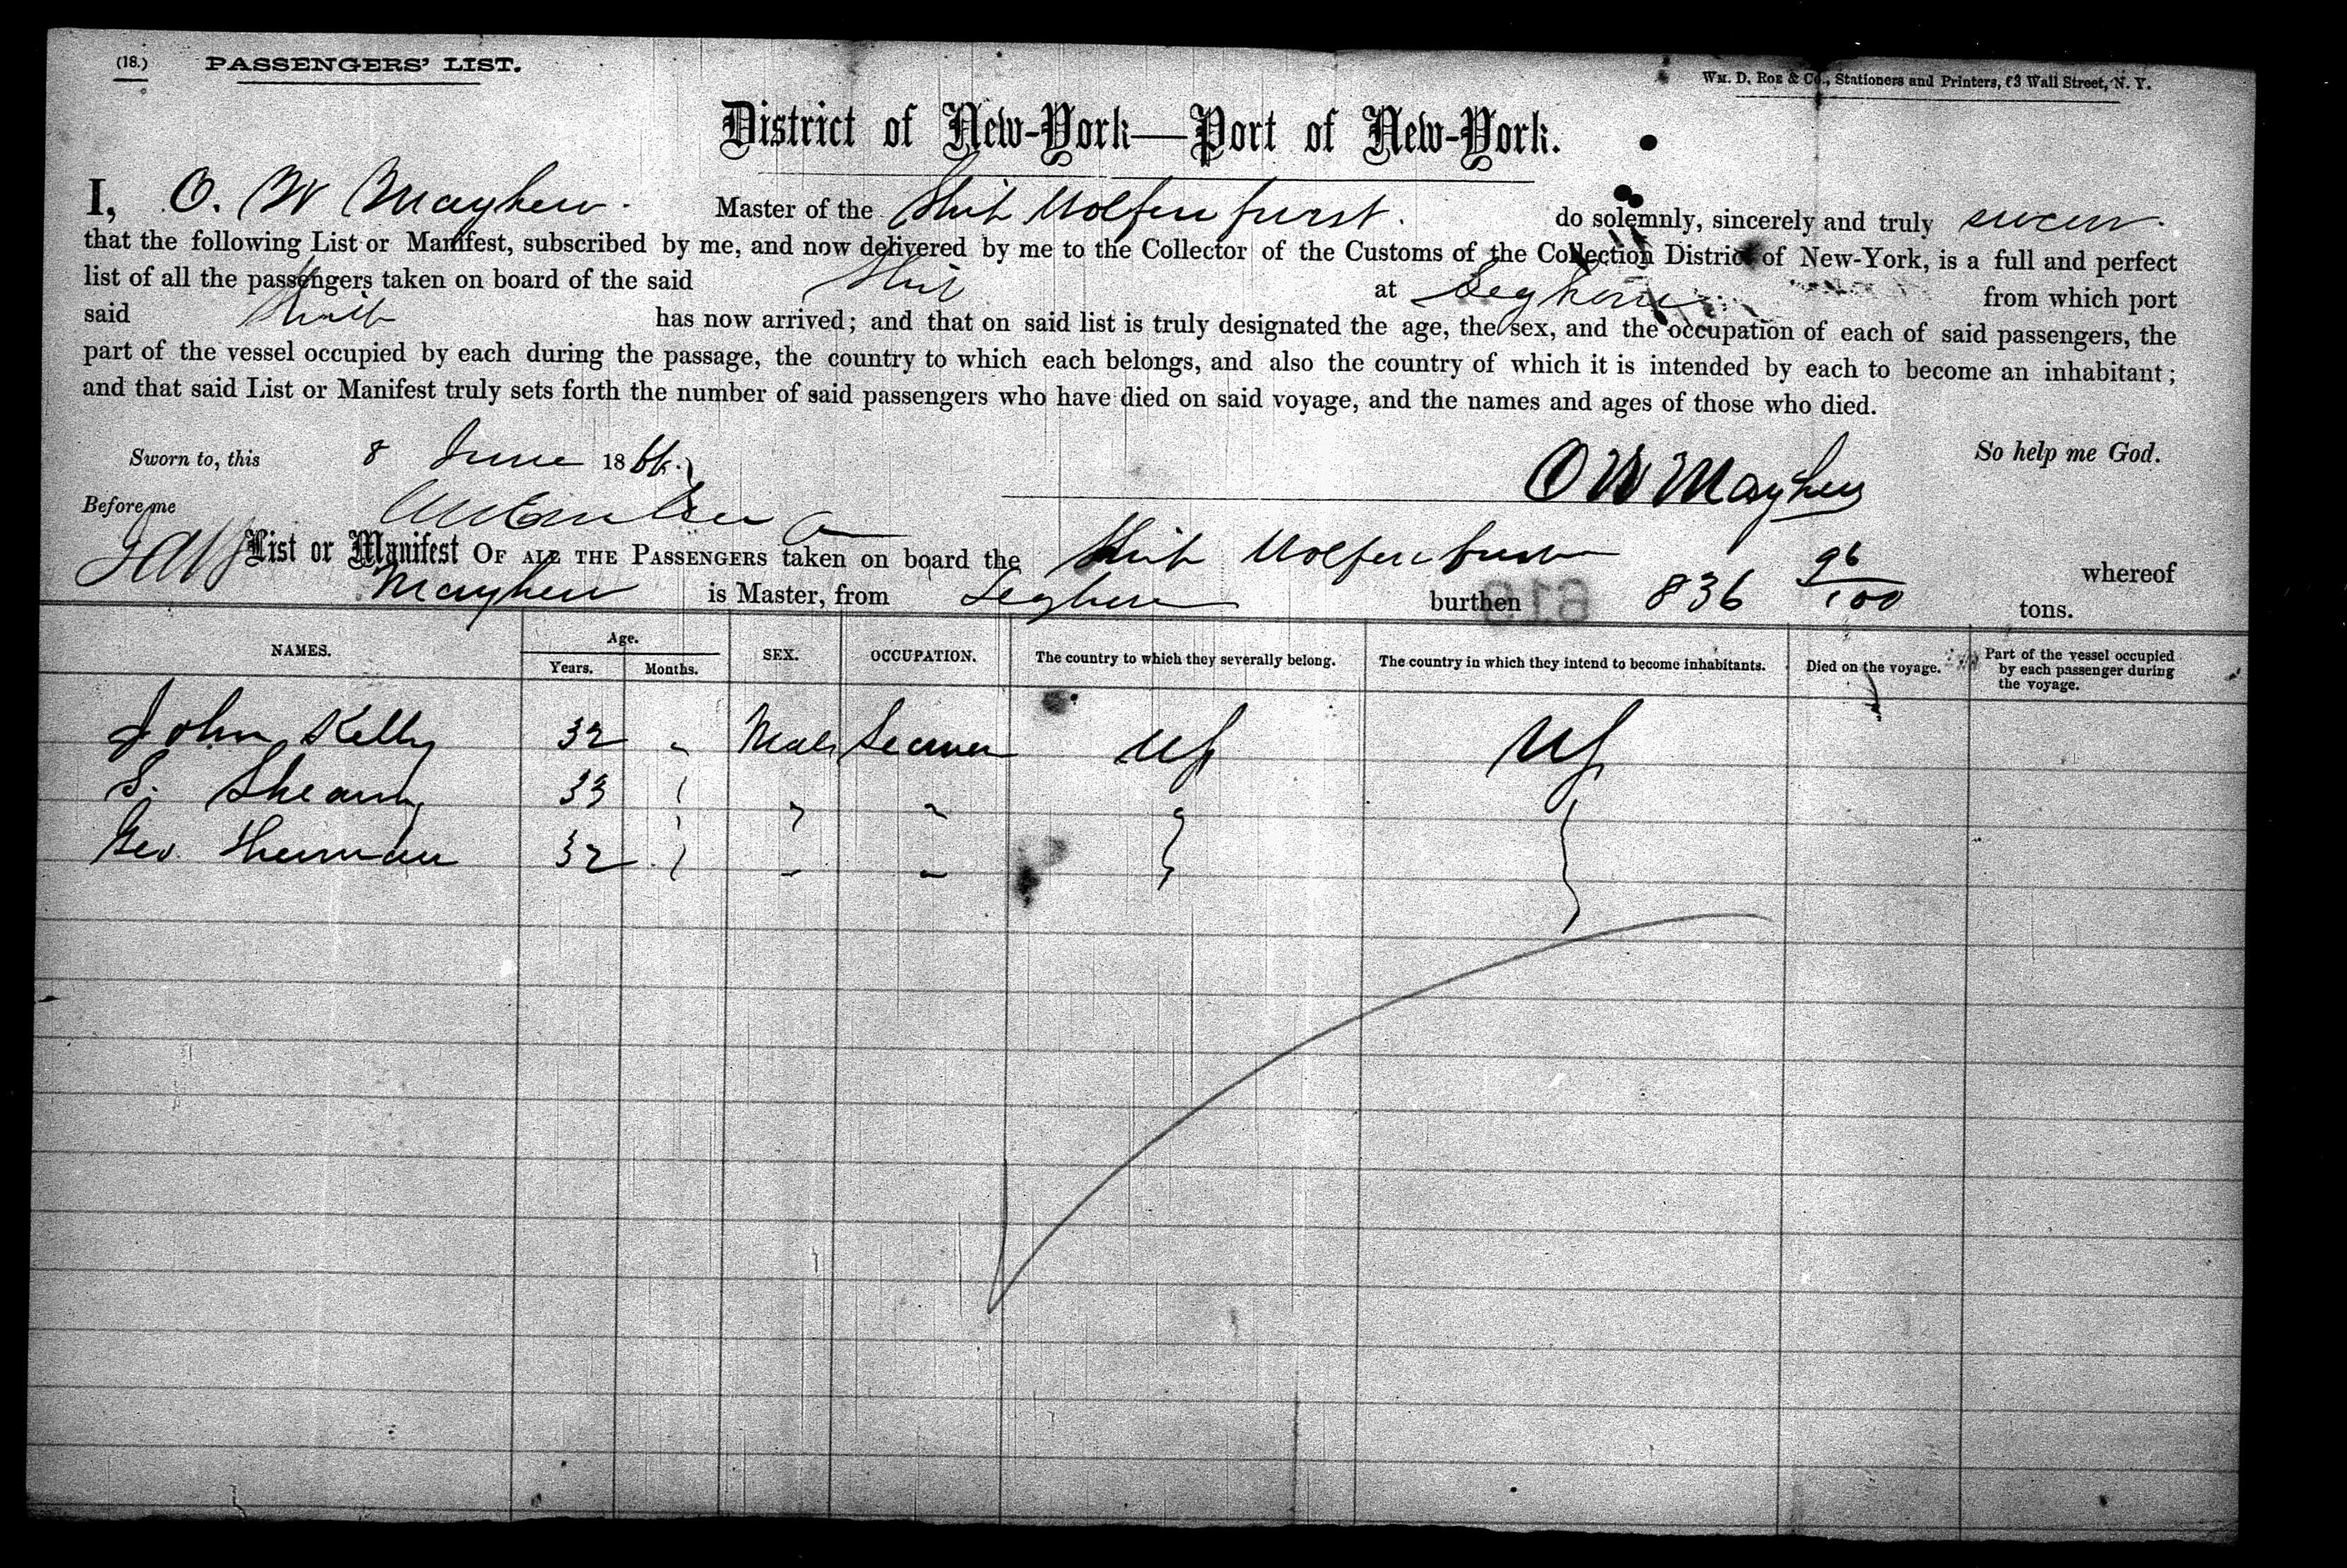 (18.) PASSENGERS' LIST.
WM. D. ROE & CO., Stationers and Printers, 63 Wall Street, N. Y.
District of New-York—Port of New-York.
I, O. W Mayhew Master of the Ship Wolfen furst. do solemnly, sincerely and truly swear
that the following List or Manifest, subscribed by me, and now delivered by me to the Collector of the Customs of the Collection District of New-York, is a full and perfect
list of all the passengers taken on board of the said Ship at Leghorn from which port
said Ship has now arrived; and that on said list is truly designated the age, the sex, and the occupation of each of said passengers, the
part of the vessel occupied by each during the passage, the country to which each belongs, and also the country of which it is intended by each to become an inhabitant;
and that said List or Manifest truly sets forth the number of said passengers who have died on said voyage, and the names and ages of those who died.
Sworn to, this 8 June 1866. So help me God.
O W Mayhew
Before me
List or Manifest OF ALL THE PASSENGERS taken on board the Ship Wolfen furst whereof
Mayhew is Master, from Leghorn burthen 836 96/100 tons.
619
NAMES. Age. Years. Months. SEX. OCCUPATION. The country to which they severally belong. The country in which they intend to become inhabitants. Died on the voyage. Part of the vessel occupied by each passenger during the voyage.
John Kelly 32 " Male Seaman US US
S. 33 " "
Geo. Sherman 32 " "